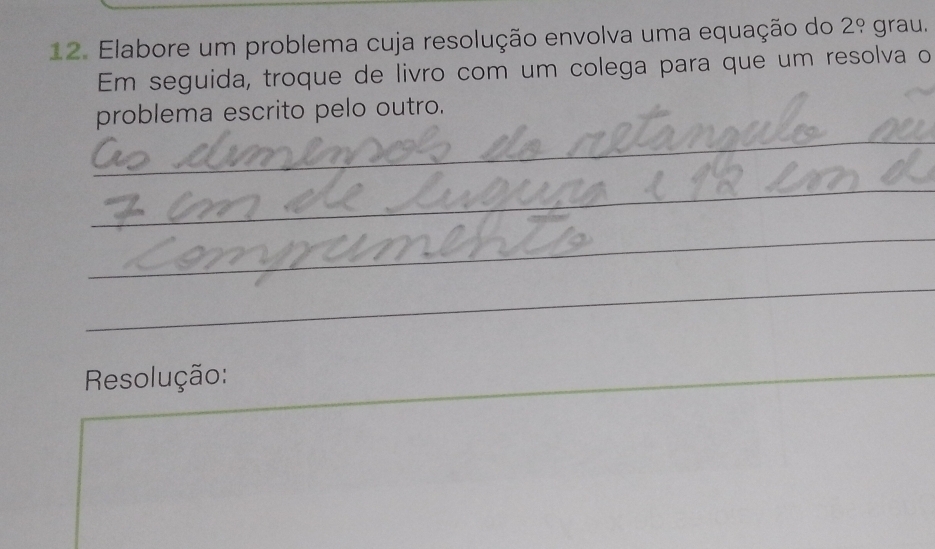 12. Elabore um problema cuja resolução envolva uma equação do 2º grau.
Em seguida, troque de livro com um colega para que um resolva o
problema escrito pelo outro.
As dimensões do retangulo são
7 cm de lugura e 12 cm de
comprimento
Resolução: